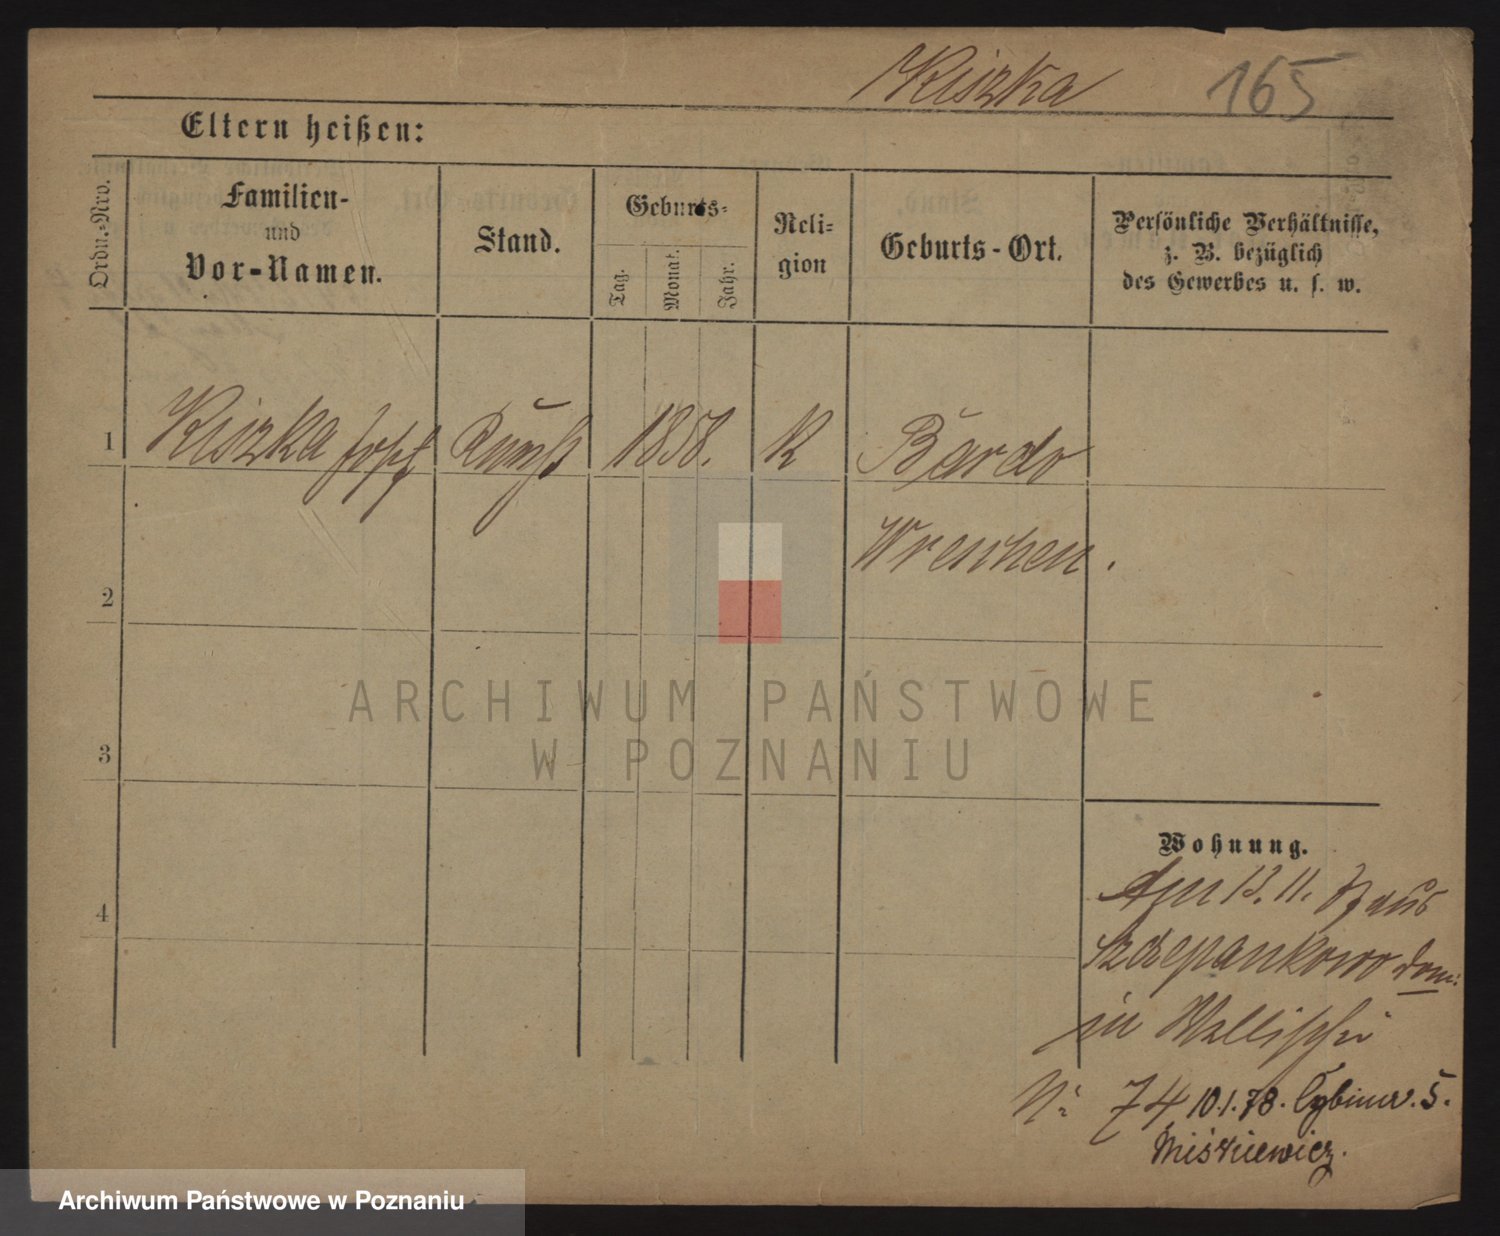 Kiszka 165
Eltern heißen:
Ordn.-Nro.
Familien-
und
Vor-Namen.
Stand.
Geburts-
Tag.
Monat.
Jahr.
Reli-
gion
Geburts-Ort.
Persönliche Verhältnisse,
z. B. bezüglich
des Gewerbes u. s. w.
1 Kiszka Josef 1858. K Bardo
Wreschen.
2
ARCHIWUM PAŃSTWOWE
W POZNANIU
3
Wohnung.
4
13. 11. aus
Szczepankowo dom:
in Wallischei
No 74 10.1.78. Cybinav. 5.
Miśkiewicz.
Archiwum Państwowe w Poznaniu